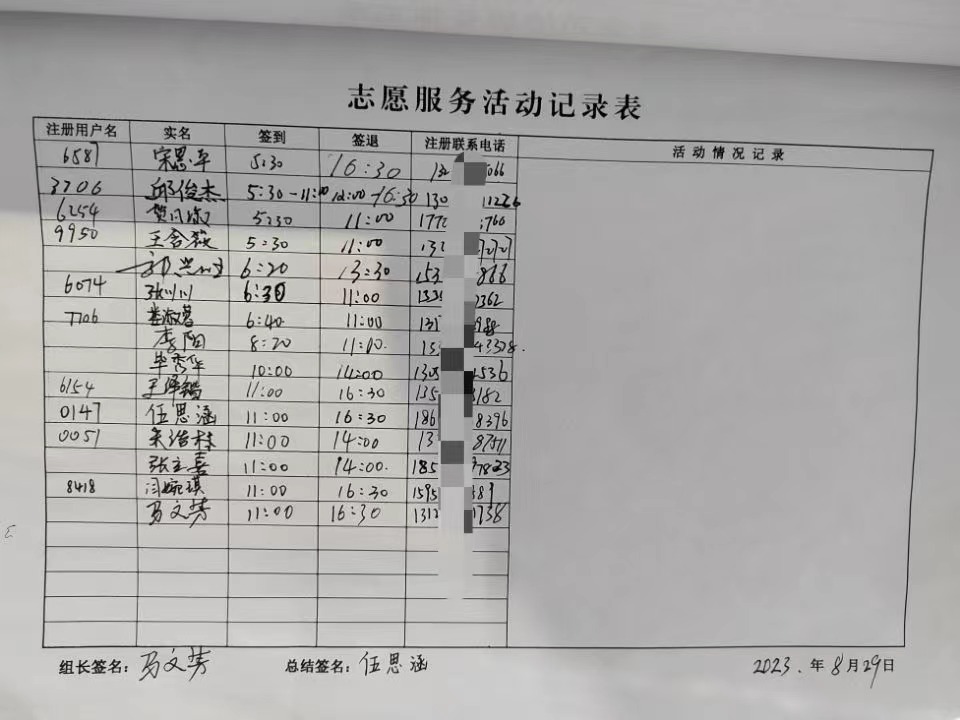 志愿服务活动记录表
注册用户名 实名 签到 签退 注册联系电话 活动情况记录
6587 宋思平 5:30 16:30 066
3706 邱俊杰 5:30-11:00 12:00-16:30 130 11226
6254 5:30 11:00 177 760
9950 王含薇 5:30 11:00 132
6:20 13:30 153 866
6074 张川川 6:30 11:00 133 2362
7706 娄淑蓉 6:40 11:00 135 988
李阳 8:20 11:00. 153 43328.
毕秀华 10:00 14:00 130 1536
6154 11:00 16:30 135 3182
0147 伍思涵 11:00 16:30 186 8396
0051 11:00 14:00 13
张立嘉 11:00 14:00. 185 7823
8418 闫婉琪 11:00 16:30 1595 589
马文芳 11:00 16:30 131 1738
组长签名：马文芳 总结签名：伍思涵 2023. 年 8 月 29 日